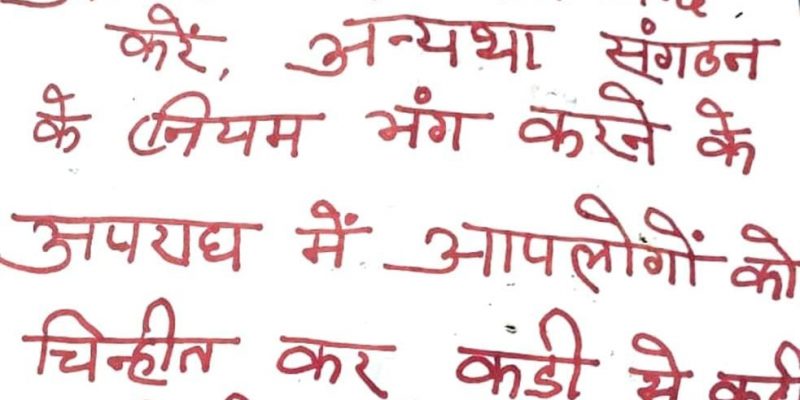 करें, अन्यथा संगठन
के नियम भंग करने के
अपराध में आपलोगों को
चिन्हीत कर कडी से कडी